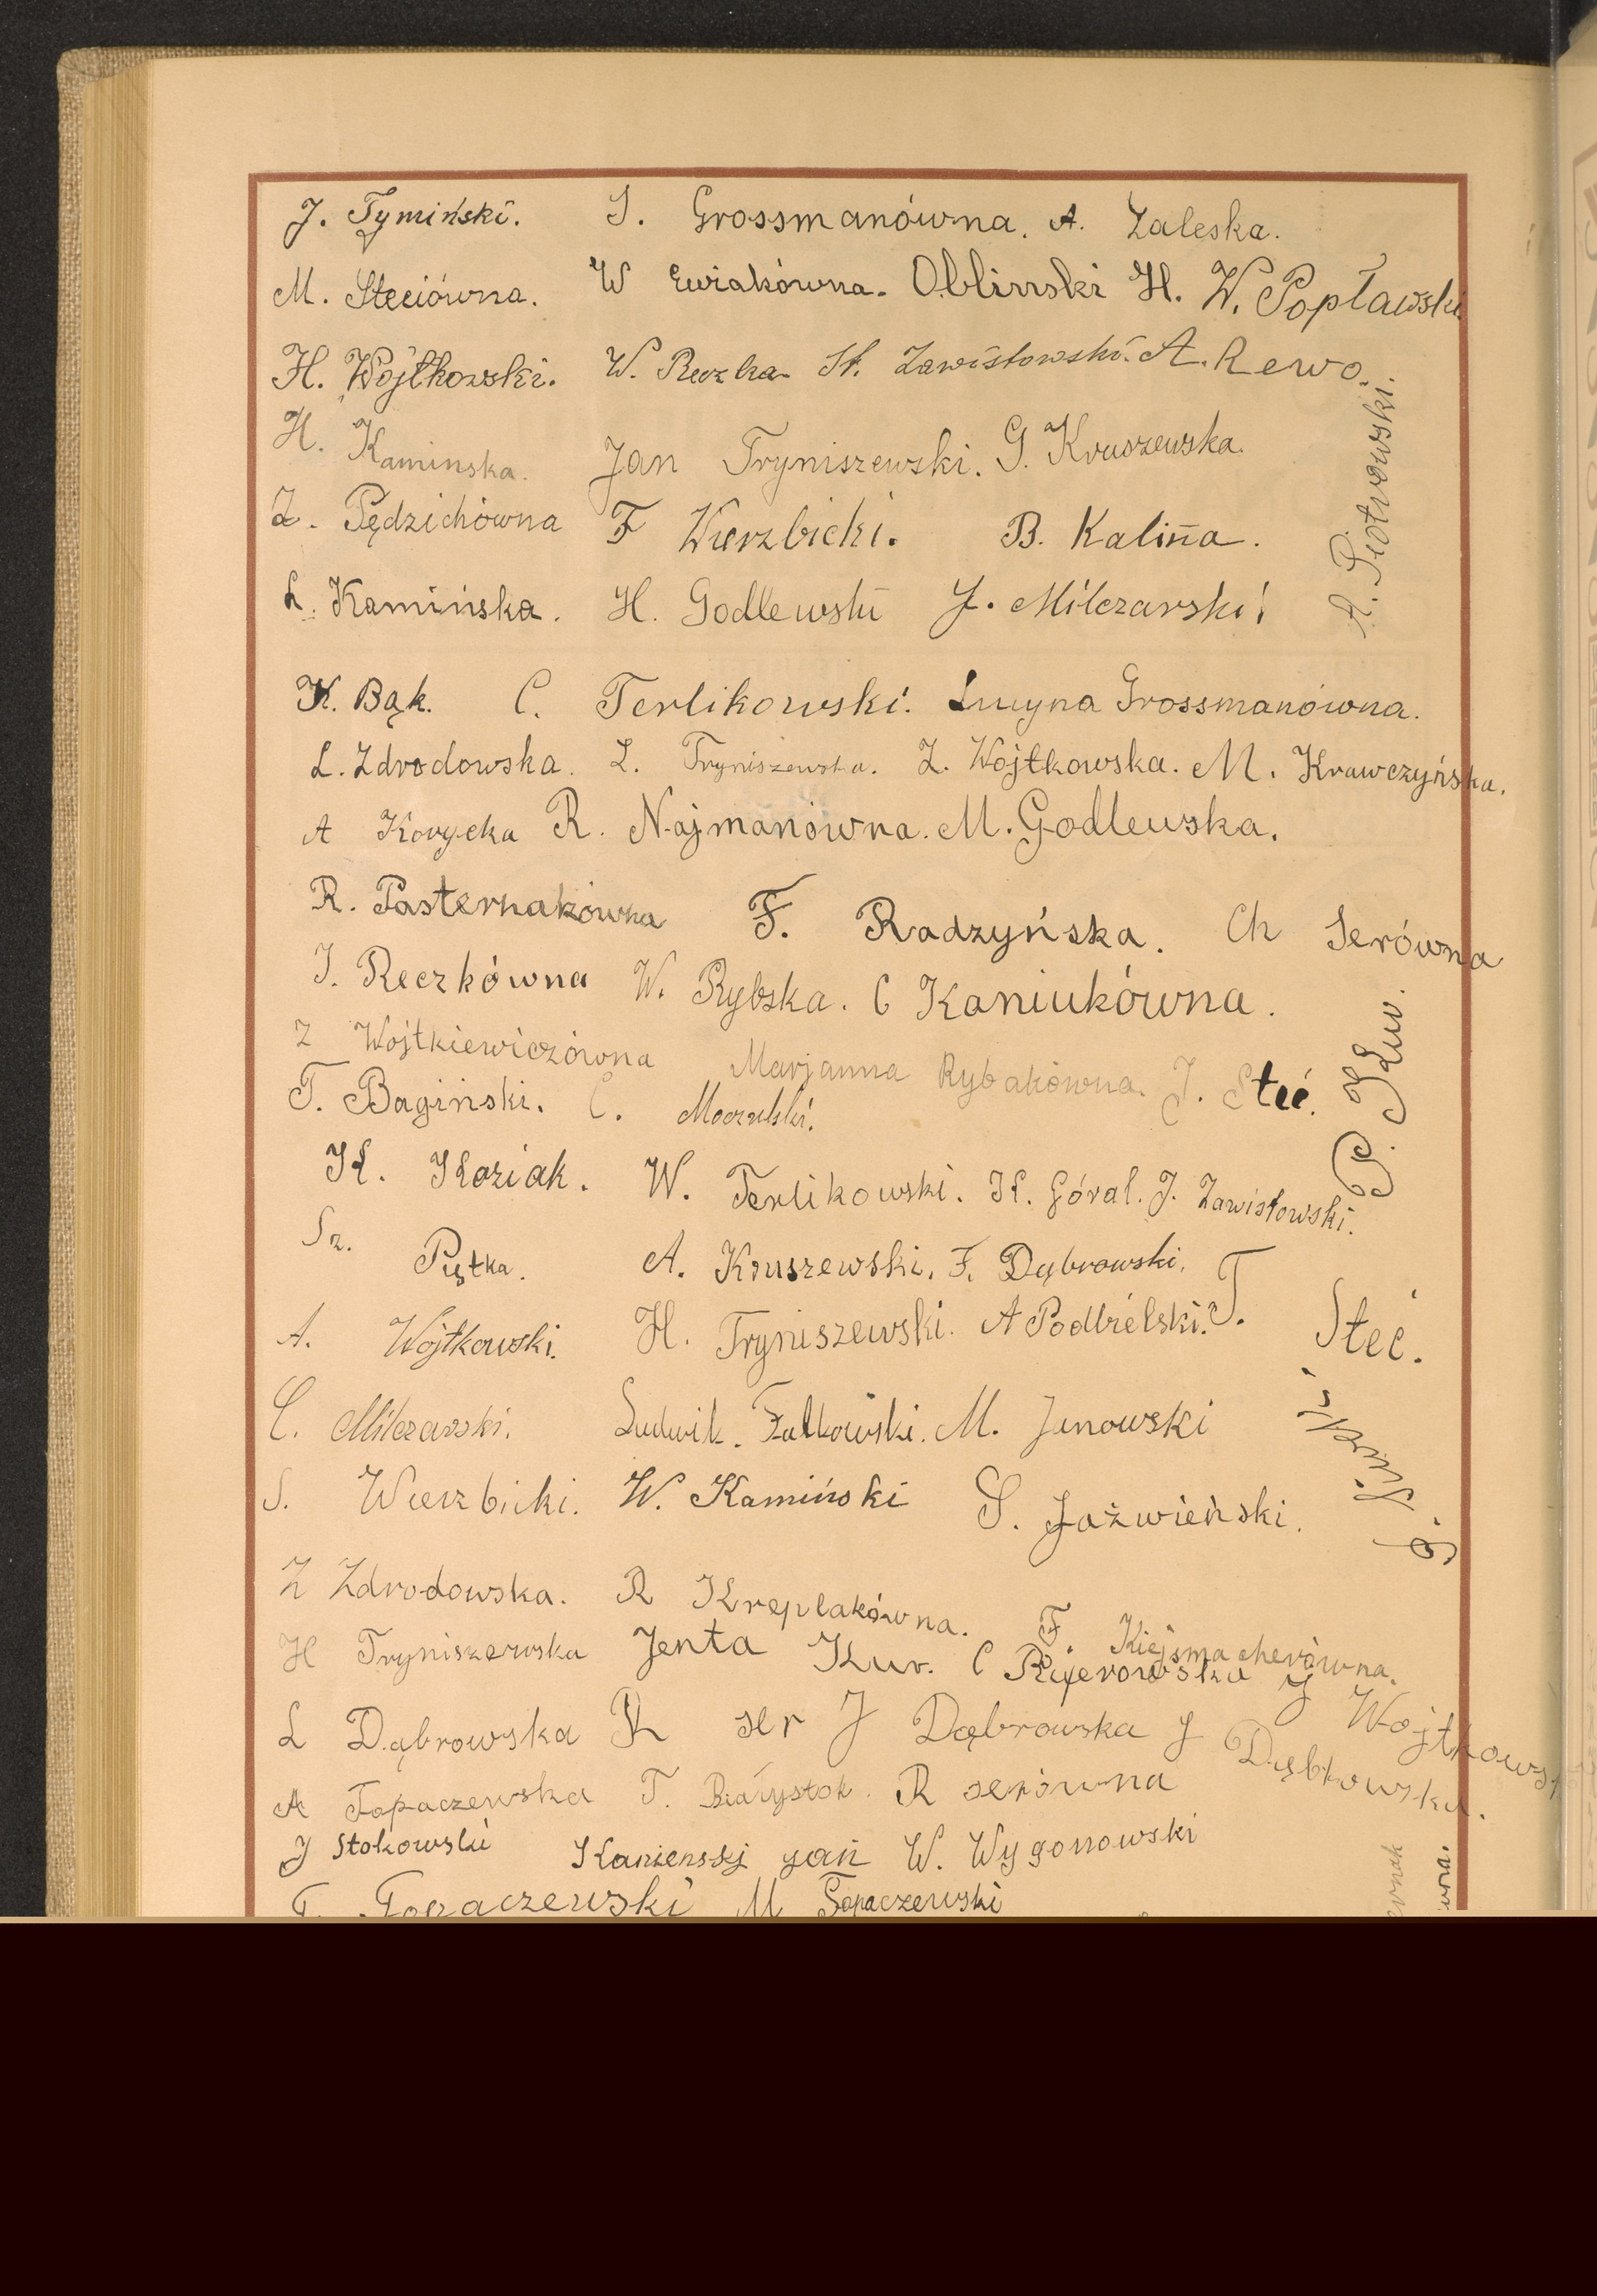 J. Tymiński. S. Grossmanówna. A. Zaleska.
M. Steciówna. W Ewiakówna. Obliński H. W. Popławski
H. Wojtkowski. W. Reczka St. Zawistowski. A. Rewo.
A. Piotrowski.
H. Kaminska. Jan Tryniszewski. G. Kruszewska.
Z. Pędzichówna F Wierzbicki. B. Kalina.
L. Kamińska. H. Godlewski J. Milczarski
K. Bąk. C. Terlikowski. Lucyna Grossmanówna.
L. Zdrodowska. L. Tryniszewska. Z. Wojtkowska. M. Krawczyńska.
A Korycka R. Najmanówna. M. Godlewska.
R. Pasternakówna F. Radzyńska. Ch Serówna
I. Reczkówna W. Rybska. C Kaniukówna.
Z Wojtkiewiczówna Marjanna Rybakówna. J. Steć.
P. Kur.
T. Bagiński. C. Moczulski.
K. Koziak. W. Terlikowski. K. Góral. J. Zawistowski.
Sz. Piątka. A. Kruszewski. F. Dąbrowski.
A. Wojtkowski. H. Tryniszewski. A Podbielski. T. Steć.
C. Milczarski. Ludwik. Falkowski. M. Janowski
S. Wierzbicki. W. Kamiński S. Jaźwieński.
Z Zdrodowska. R Kreplakówna. F. Kiejsmacherówna.
H Tryniszewska Jenta Kur. C
L Dąbrowska R ser J Dąbrowska J Wojtkowsk
A Topaczewska T. Białystok. R serówna J Dąbkowska.
J Stokowski Kamienskj jan W. Wygonowski
T. Topaczewski M Topaczewski